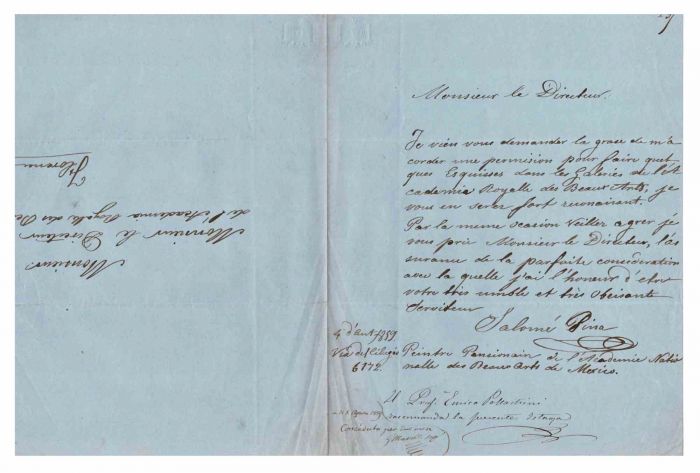 Monsieur le Directeur.
Je viens vous demander la grase de m'a
corder une permision pour faire quel
ques Esquisses dans les Galeries de l'A
cademia Royalle des Beaux Arts, je
vous en serez fort reconaisant.
Par la meme ocasion Veillez agrer je
vous prie Monsieur le Directeur, l'as
surance de la parfaite consideration
avec la quelle j'ai l'honneur d'etre
votre très umble et très obeisante
Serviteur
Salomé Pina
Peintre Pansionain de l'Academie Natio
nalle des Beaux Arts de Mexico.
4 d'aut 1859
6172.
Il Prof. Enrico Pollastrini
raccomanda la presente istanza
Monsieur.
Monsieur le Directeur
de l'Academie Royalle des Be
Florence